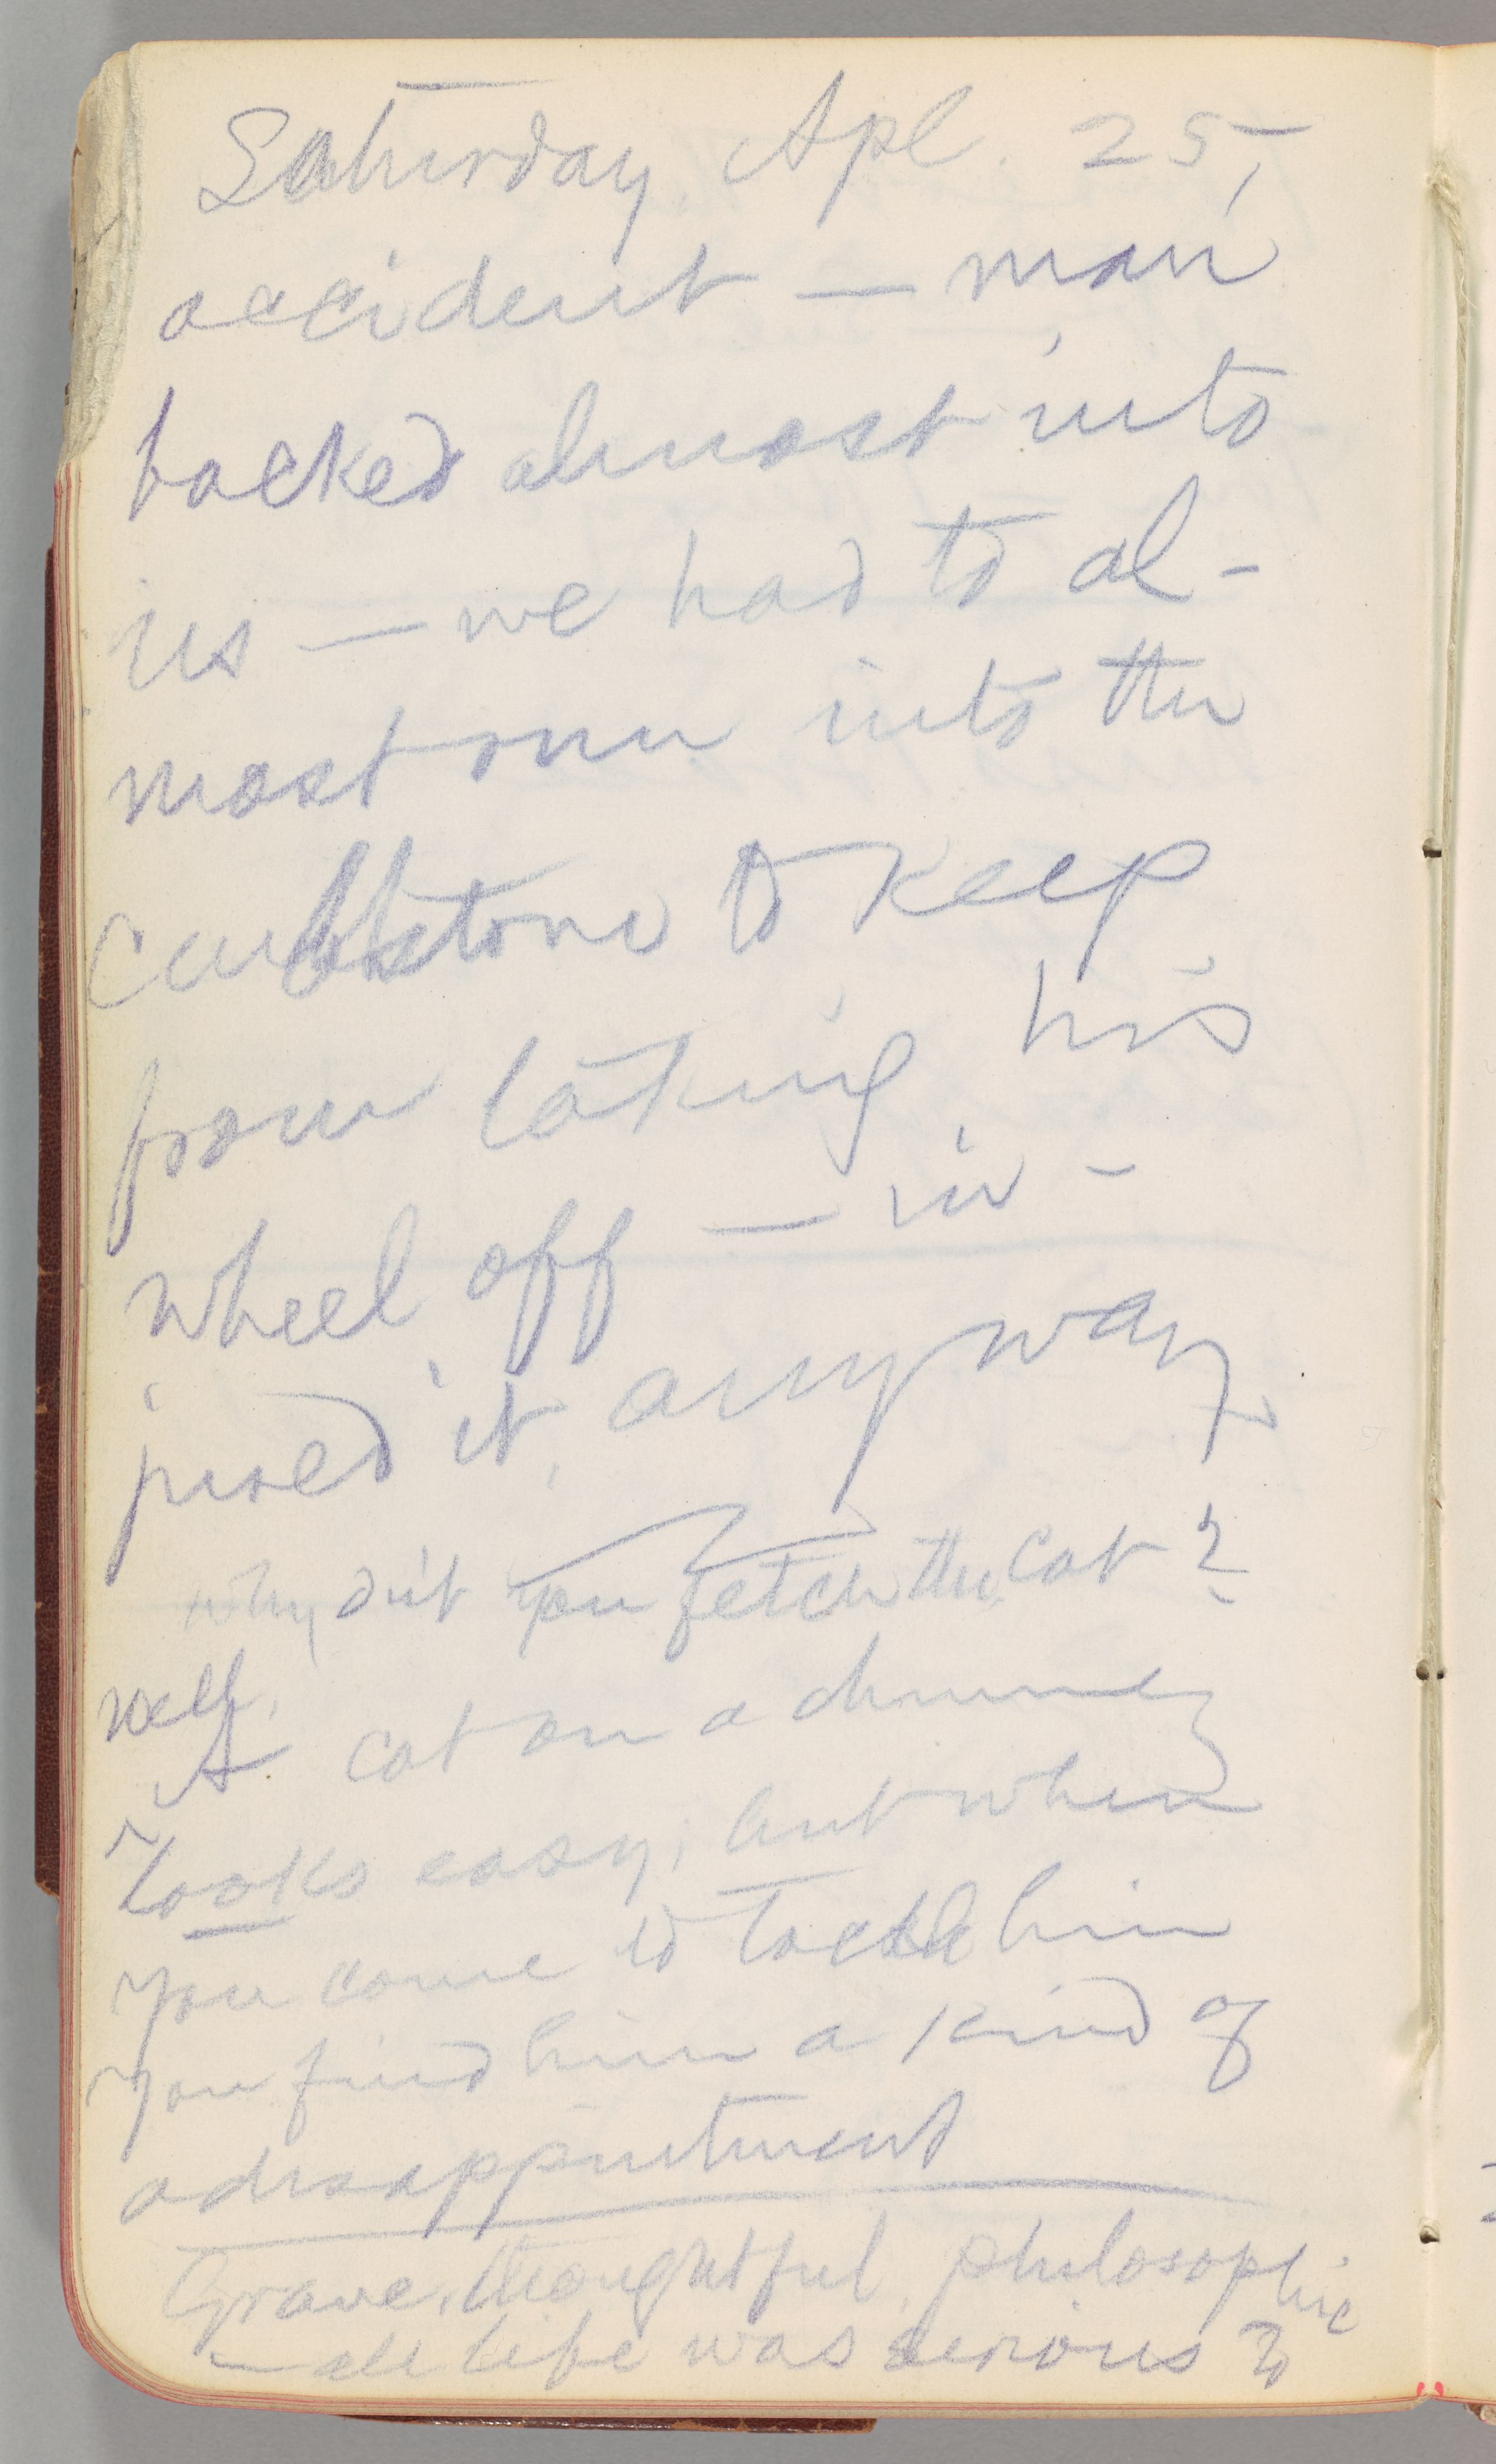 Saturday, Apl. 25,
accident — man
backed almost into
us — we had to al-
most run into the
curbstone to keep
from taking his
wheel off — in-
jured it, anyway.
Why di'nt you fetch the cat?
Well,
A cat on a chimney
looks easy; but when
you come to tackle him
you find him a kind of
a disappintment
Grave, thoughtful, philosophic
— all life was serious to